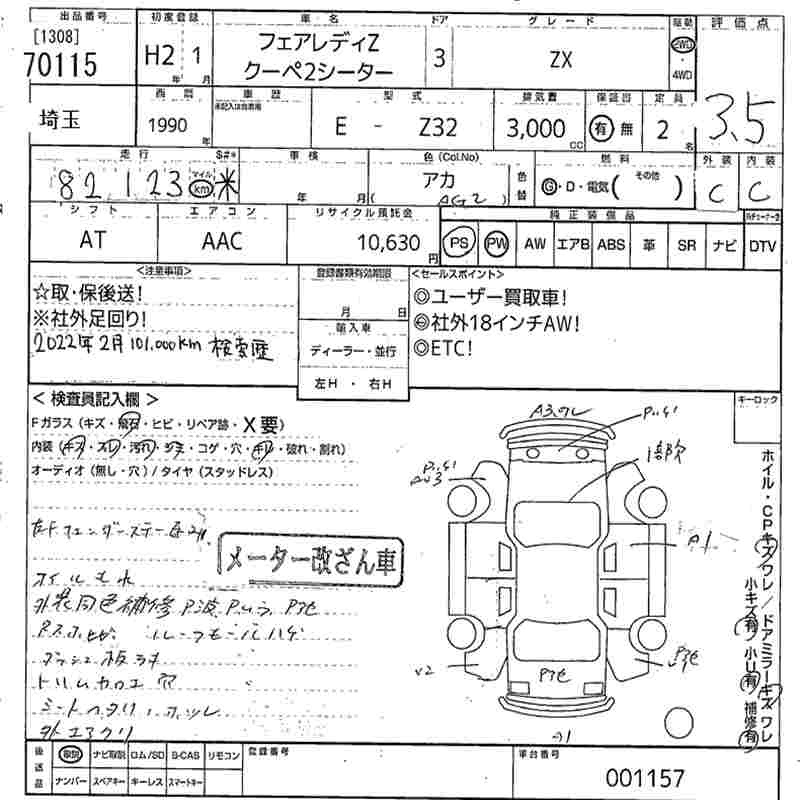 出品番号 初度登録 車名 ドア グレード 駆動 評価点
[1308]
70115 H2年 1月 フェアレディZ クーペ2シーター 3 ZX 2WD・4WD 3.5
埼玉 西暦 車歴 型式 排気量 保証書 定員
1990年 未記入は自家用 E - Z32 3,000cc 有 無 2名
走行 S#* 車検 色(Col.No) 色替 燃料 外装 内装
82,123 マイル km * 年 月 アカ (AG2) G・D・電気( その他 ) C C
シフト エアコン リサイクル預託金 純正装備品
AT AAC 10,630円 PS PW AW エアB ABS 革 SR ナビ DTV
<注意事項> 登録書類有効期限 <セールスポイント>
☆取・保後送! 月 日 ◎ユーザー買取車!
※社外足回り! 輸入車 ◎社外18インチAW!
2022年2月101,000km 検査歴 ディーラー・並行 ◎ETC!
左H ・ 右H
<検査員記入欄> キーロック
Fガラス(キズ・飛石・ヒビ・リペア跡・X要)
内装(キズ・スレ・汚れ・シミ・コゲ・穴・キレ・破れ・割れ)
オーディオ(無し・穴)/タイヤ(スタッドレス)
メーター改ざん車
オイルもれ
外装同色補修 P波
ルーフモールハゲ
ダッシュ板
A1
V2
ホイル・CPキズワレ/ドアミラーキズワレ
小キズ有 小U有 補修有
後送品 取説 ナビ取説 ロム/SD B-CAS リモコン 登録番号 車台番号
ナンバー スペアキー キーレス スマートキー 001157